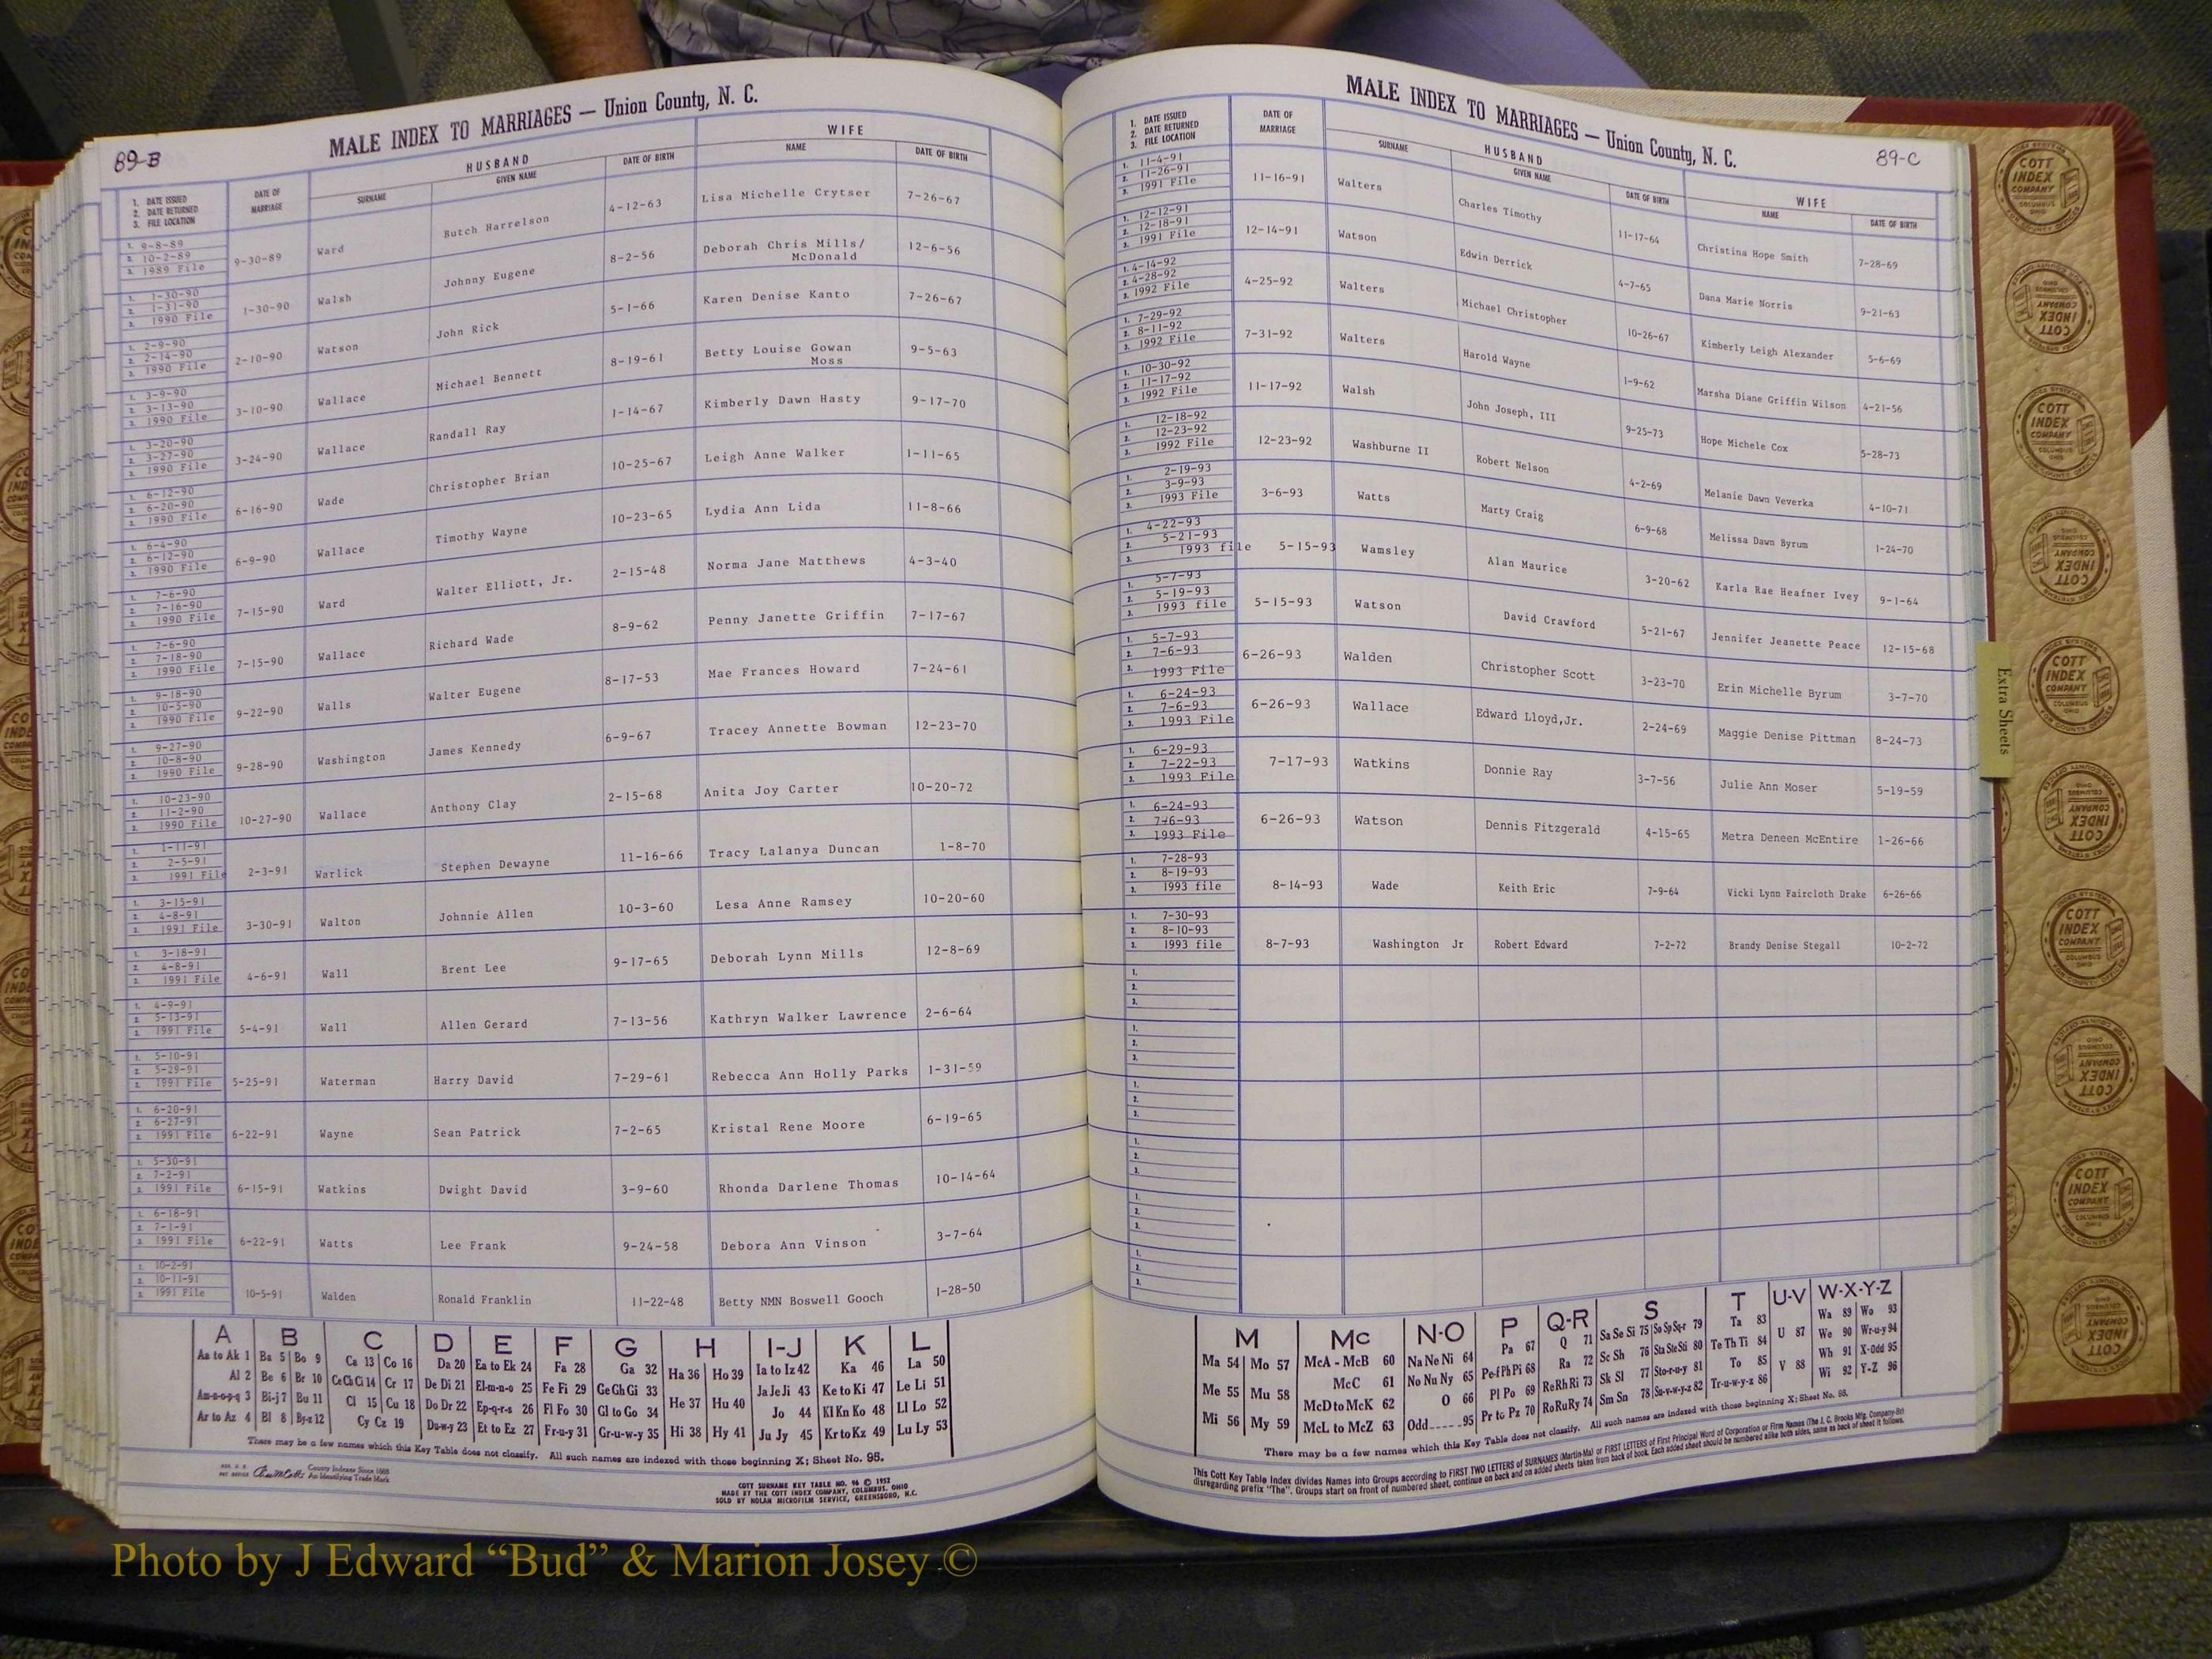 89-B
MALE INDEX TO MARRIAGES — Union County, N. C.
1. DATE ISSUED
2. DATE RETURNED
3. FILE LOCATION
DATE OF MARRIAGE
HUSBAND
SURNAME GIVEN NAME DATE OF BIRTH
WIFE
NAME DATE OF BIRTH
1. 9-8-89
2. 10-2-89
3. 1989 File
9-30-89 Ward Butch Harrelson 4-12-63 Lisa Michelle Crytser 7-26-67
1. 1-30-90
2. 1-31-90
3. 1990 File
1-30-90 Walsh Johnny Eugene 8-2-56 Deborah Chris Mills/ 12-6-56
McDonald
1. 2-9-90
2. 2-14-90
3. 1990 File
2-10-90 Watson John Rick 5-1-66 Karen Denise Kanto 7-26-67
1. 3-9-90
2. 3-13-90
3. 1990 File
3-10-90 Wallace Michael Bennett 8-19-61 Betty Louise Gowan 9-5-63
Moss
1. 3-20-90
2. 3-27-90
3. 1990 File
3-24-90 Wallace Randall Ray 1-14-67 Kimberly Dawn Hasty 9-17-70
1. 6-12-90
2. 6-20-90
3. 1990 File
6-16-90 Wade Christopher Brian 10-25-67 Leigh Anne Walker 1-11-65
1. 6-4-90
2. 6-12-90
3. 1990 File
6-9-90 Wallace Timothy Wayne 10-23-65 Lydia Ann Lida 11-8-66
1. 7-6-90
2. 7-16-90
3. 1990 File
7-15-90 Ward Walter Elliott, Jr. 2-15-48 Norma Jane Matthews 4-3-40
1. 7-6-90
2. 7-18-90
3. 1990 File
7-15-90 Wallace Richard Wade 8-9-62 Penny Janette Griffin 7-17-67
1. 9-18-90
2. 10-5-90
3. 1990 File
9-22-90 Walls Walter Eugene 8-17-53 Mae Frances Howard 7-24-61
1. 9-27-90
2. 10-8-90
3. 1990 File
9-28-90 Washington James Kennedy 6-9-67 Tracey Annette Bowman 12-23-70
1. 10-23-90
2. 11-2-90
3. 1990 File
10-27-90 Wallace Anthony Clay 2-15-68 Anita Joy Carter 10-20-72
1. 1-11-91
2. 2-5-91
3. 1991 File
2-3-91 Warlick Stephen Dewayne 11-16-66 Tracy Lalanya Duncan 1-8-70
1. 3-15-91
2. 4-8-91
3. 1991 File
3-30-91 Walton Johnnie Allen 10-3-60 Lesa Anne Ramsey 10-20-60
1. 3-18-91
2. 4-8-91
3. 1991 File
4-6-91 Wall Brent Lee 9-17-65 Deborah Lynn Mills 12-8-69
1. 4-9-91
2. 5-13-91
3. 1991 File
5-4-91 Wall Allen Gerard 7-13-56 Kathryn Walker Lawrence 2-6-64
1. 5-10-91
2. 5-29-91
3. 1991 File
5-25-91 Waterman Harry David 7-29-61 Rebecca Ann Holly Parks 1-31-59
1. 6-20-91
2. 6-27-91
3. 1991 File
6-22-91 Wayne Sean Patrick 7-2-65 Kristal Rene Moore 6-19-65
1. 5-30-91
2. 7-2-91
3. 1991 File
6-15-91 Watkins Dwight David 3-9-60 Rhonda Darlene Thomas 10-14-64
1. 6-18-91
2. 7-1-91
3. 1991 File
6-22-91 Watts Lee Frank 9-24-58 Debora Ann Vinson 3-7-64
1. 10-2-91
2. 10-11-91
3. 1991 File
10-5-91 Walden Ronald Franklin 11-22-48 Betty NMN Boswell Gooch 1-28-50
A B C D E F G H I-J K L
Aa to Ak 1 Ba 5 Bo 9 Ca 13 Co 16 Da 20 Ea to Ek 24 Fa 28 Ga 32 Ha 36 Ho 39 Ia to Iz 42 Ka 46 La 50
Al 2 Be 6 Br 10 Ce Ch Ci 14 Cr 17 De Di 21 El-m-n-o 25 Fe Fi 29 Ge Gh Gi 33 Ja Je Ji 43 Ke to Ki 47 Le Li 51
Am-n-o-p-q 3 Bi-j 7 Bu 11 Cl 15 Cu 18 Do Dr 22 Ep-q-r-s 26 Fl Fo 30 Gl to Go 34 He 37 Hu 40 Jo 44 Kl Kn Ko 48 Ll Lo 52
Ar to Az 4 Bl 8 By-z 12 Cy Cz 19 Du-w-y 23 Et to Ez 27 Fr-u-y 31 Gr-u-w-y 35 Hi 38 Hy 41 Ju Jy 45 Kr to Kz 49 Lu Ly 53
There may be a few names which this Key Table does not classify. All such names are indexed with those beginning X; Sheet No. 95.
County Indexes Since 1888
An Identifying Trade Mark
COTT SURNAME KEY TABLE NO. 96 © 1952
MADE BY THE COTT INDEX COMPANY, COLUMBUS, OHIO
SOLD BY NOLAN MICROFILM SERVICE, GREENSBORO, N.C.
89-C
MALE INDEX TO MARRIAGES — Union County, N. C.
1. DATE ISSUED
2. DATE RETURNED
3. FILE LOCATION
DATE OF MARRIAGE
HUSBAND
SURNAME GIVEN NAME DATE OF BIRTH
WIFE
NAME DATE OF BIRTH
1. 11-4-91
2. 11-26-91
3. 1991 File
11-16-91 Walters Charles Timothy 11-17-64 Christina Hope Smith 7-28-69
1. 12-12-91
2. 12-18-91
3. 1991 File
12-14-91 Watson Edwin Derrick 4-7-65 Dana Marie Norris 9-21-63
1. 4-14-92
2. 4-28-92
3. 1992 File
4-25-92 Walters Michael Christopher 10-26-67 Kimberly Leigh Alexander 5-6-69
1. 7-29-92
2. 8-11-92
3. 1992 File
7-31-92 Walters Harold Wayne 1-9-62 Marsha Diane Griffin Wilson 4-21-56
1. 10-30-92
2. 11-17-92
3. 1992 File
11-17-92 Walsh John Joseph, III 9-25-73 Hope Michele Cox 5-28-73
1. 12-18-92
2. 12-23-92
3. 1992 File
12-23-92 Washburne II Robert Nelson 4-2-69 Melanie Dawn Veverka 4-10-71
1. 2-19-93
2. 3-9-93
3. 1993 File
3-6-93 Watts Marty Craig 6-9-68 Melissa Dawn Byrum 1-24-70
1. 4-22-93
2. 5-21-93
3. 1993 file
5-15-93 Wamsley Alan Maurice 3-20-62 Karla Rae Heafner Ivey 9-1-64
1. 5-7-93
2. 5-19-93
3. 1993 file
5-15-93 Watson David Crawford 5-21-67 Jennifer Jeanette Peace 12-15-68
1. 5-7-93
2. 7-6-93
3. 1993 File
6-26-93 Walden Christopher Scott 3-23-70 Erin Michelle Byrum 3-7-70
1. 6-24-93
2. 7-6-93
3. 1993 File
6-26-93 Wallace Edward Lloyd,Jr. 2-24-69 Maggie Denise Pittman 8-24-73
1. 6-29-93
2. 7-22-93
3. 1993 File
7-17-93 Watkins Donnie Ray 3-7-56 Julie Ann Moser 5-19-59
1. 6-24-93
2. 7-6-93
3. 1993 File
6-26-93 Watson Dennis Fitzgerald 4-15-65 Metra Deneen McEntire 1-26-66
1. 7-28-93
2. 8-19-93
3. 1993 file
8-14-93 Wade Keith Eric 7-9-64 Vicki Lynn Faircloth Drake 6-26-66
1. 7-30-93
2. 8-10-93
3. 1993 file
8-7-93 Washington Jr Robert Edward 7-2-72 Brandy Denise Stegall 10-2-72
1.
2.
3.
1.
2.
3.
1.
2.
3.
1.
2.
3.
1.
2.
3.
1.
2.
3.
M Mc N-O P Q-R S T U-V W-X-Y-Z
Ma 54 Mo 57 McA - McB 60 Na Ne Ni 64 Pa 67 Q 71 Sa Se Si 75 So Sp Sq-r 79 Ta 83 U 87 Wa 89 Wo 93
Me 55 Mu 58 McC 61 No Nu Ny 65 Pe-f Ph Pi 68 Ra 72 Sc Sh 76 Sta Ste Sti 80 Te Th Ti 84 We 90 Wr-u-y 94
McD to McK 62 O 66 Pl Po 69 Re Rh Ri 73 Sk Sl 77 Sto-r-u-y 81 To 85 V 88 Wh 91 X-Odd 95
Mi 56 My 59 McL to McZ 63 Odd 95 Pr to Pz 70 Ro Ru Ry 74 Sm Sn 78 Su-v-w-y-z 82 Tr-u-w-y-z 86 Wi 92 Y-Z 96
There may be a few names which this Key Table does not classify. All such names are indexed with those beginning X; Sheet No. 95.
This Cott Key Table Index divides Names into Groups according to FIRST TWO LETTERS of SURNAMES (Martin-Ma) or FIRST LETTERS of First Principal Word of Corporation or Firm Names (The J. C. Brooks Mfg. Company-Br)
disregarding prefix "The". Groups start on front of numbered sheet, continue on back and on added sheets taken from back of book. Each added sheet should be numbered alike both sides, same as back of sheet it follows.
Extra Sheets
COTT INDEX COMPANY COLUMBUS OHIO
Photo by J Edward “Bud” & Marion Josey ©